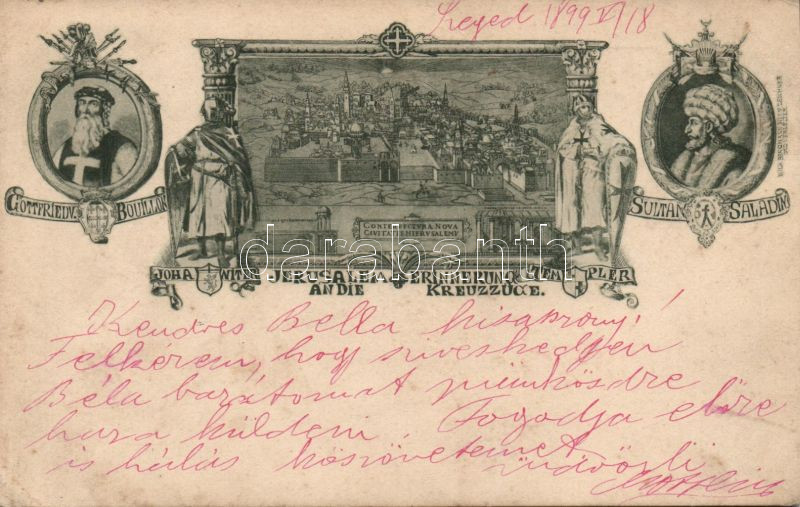 Szeged 1899 V/18
GOTTFRIED V. BOUILLON
SULTAN SALADIN
CONTERFECTVRA NOVA
CIVITATIS HIERVSALEMS
JOHANNITER
TEMPLER
JERUSALEM ERINNERUNG
AN DIE KREUZZÜGE.
darabanth
Kendves Bella kisasszony!
Felkérem, hogy sziveskedjen
Béla barátomat pünkösdre
haza küldeni. Fogadja előre
is hálás köszönetemet
üdvözli